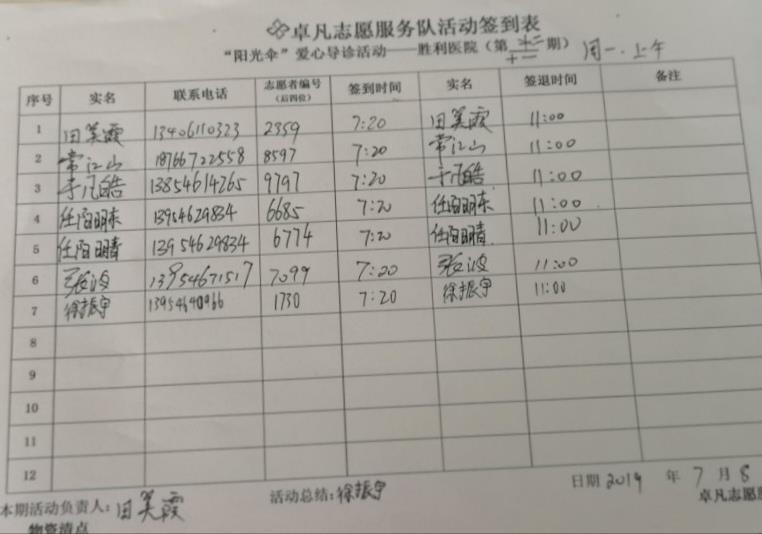 卓凡志愿服务队活动签到表
“阳光伞”爱心导诊活动——胜利医院（第十二期） 周一.上午
十一
序号 实名 联系电话 志愿者编号（后四位） 签到时间 实名 签退时间 备注
1 田美霞 13406110323 2359 7:20 田美霞 11:00
2 常江山 18766722558 8597 7:20 常江山 11:00
3 于凡皓 13854614265 9797 7:20 于凡皓 11:00
4 任陌明东 13954629834 6685 7:20 任陌明东 11:00
5 任陌明青 13954629834 6774 7:20 任陌明青 11:00
6 张波 13954671517 7099 7:20 张波 11:00
7 徐振宇 13954640966 1730 7:20 徐振宇 11:00
8
9
10
11
12
日期 2019 年 7 月 8
本期活动负责人：田美霞 活动总结：徐振宇 卓凡志愿
物资清点